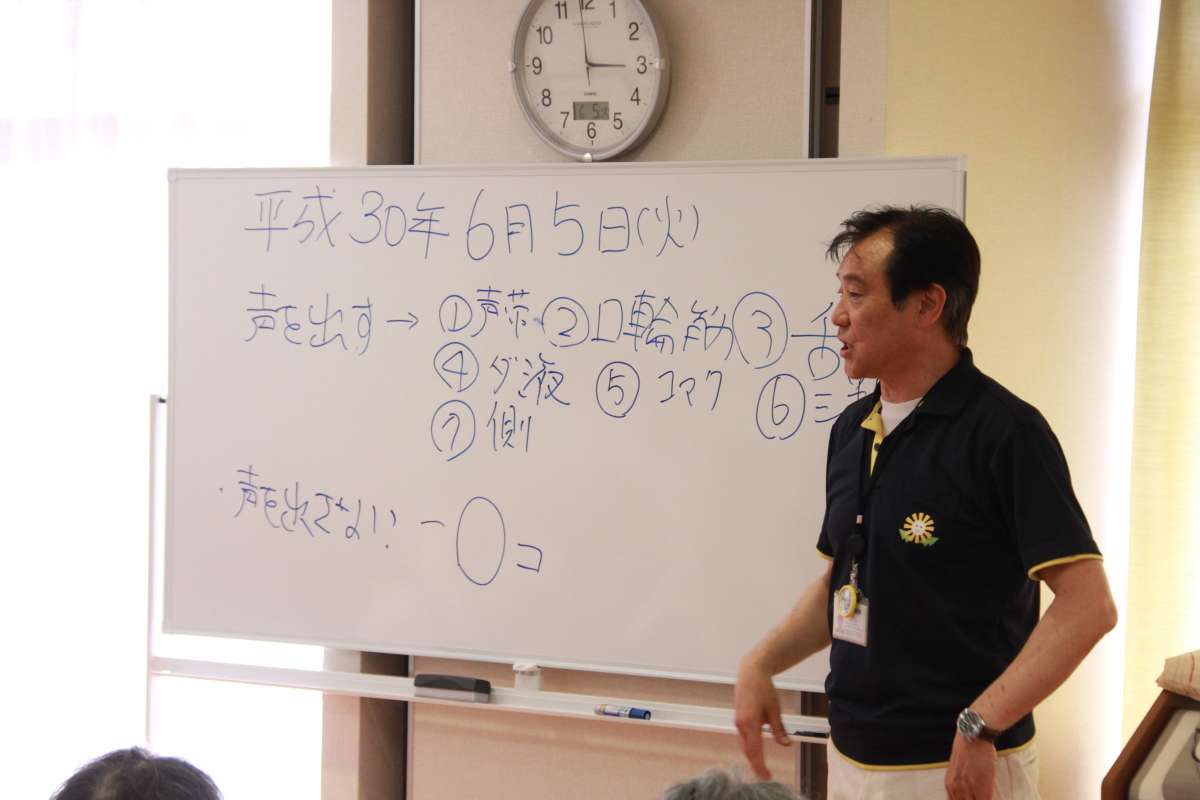 11 12 1
10 2
9 3
8 4
7 6 5
平成30年6月5日(火)
声を出す→ ①声帯 ②口輪筋 ③舌
④ダ液 ⑤コマク ⑥ミ
⑦側
・声を出さない ー 0コ